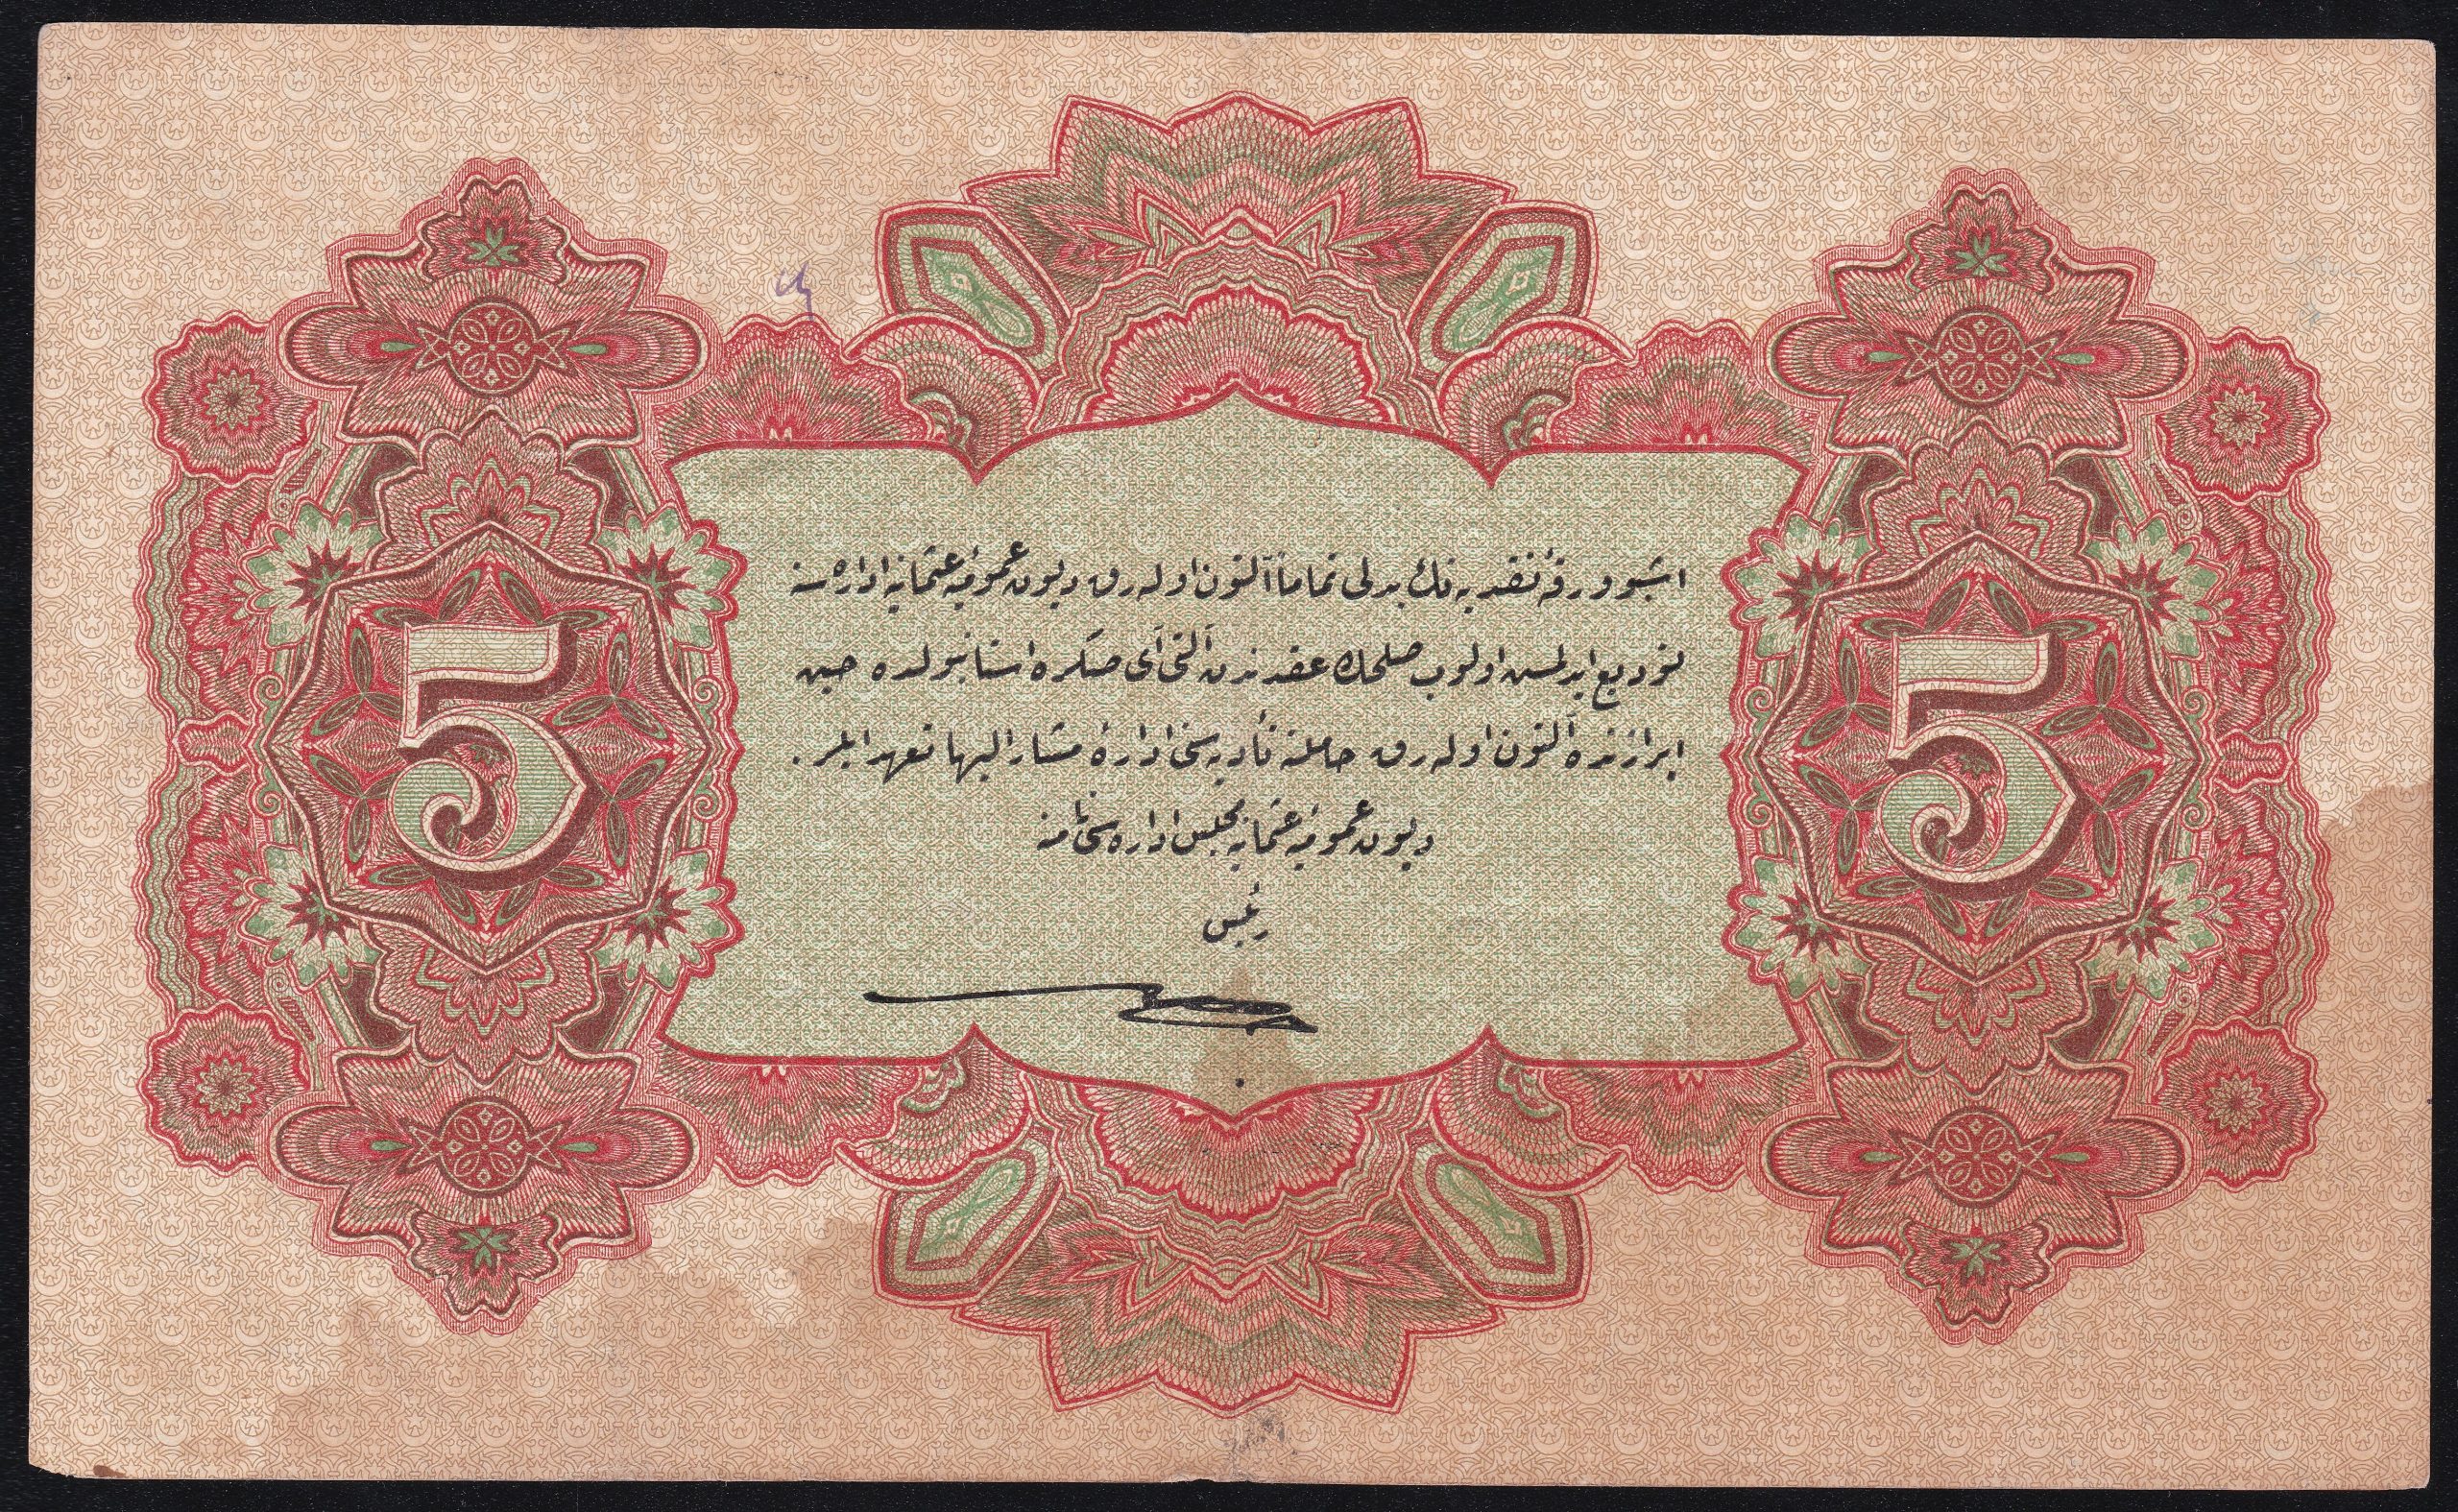 5
5
اشبو ورقۀ نقدیه نك بدلی تماماً آلتون اوله رق دیون عمومیۀ عثمانیه اداره سنه
تودیع ایدلمش اولوب صلحك عقدندن آلتی آی صكره استانبولده حین
ابرازنده آلتون اوله رق حاملنه تأدیه سنی ادارۀ مشار الیها تعهد ایلر .
دیون عمومیۀ عثمانیه مجلس اداره سی نامنه
رئیس